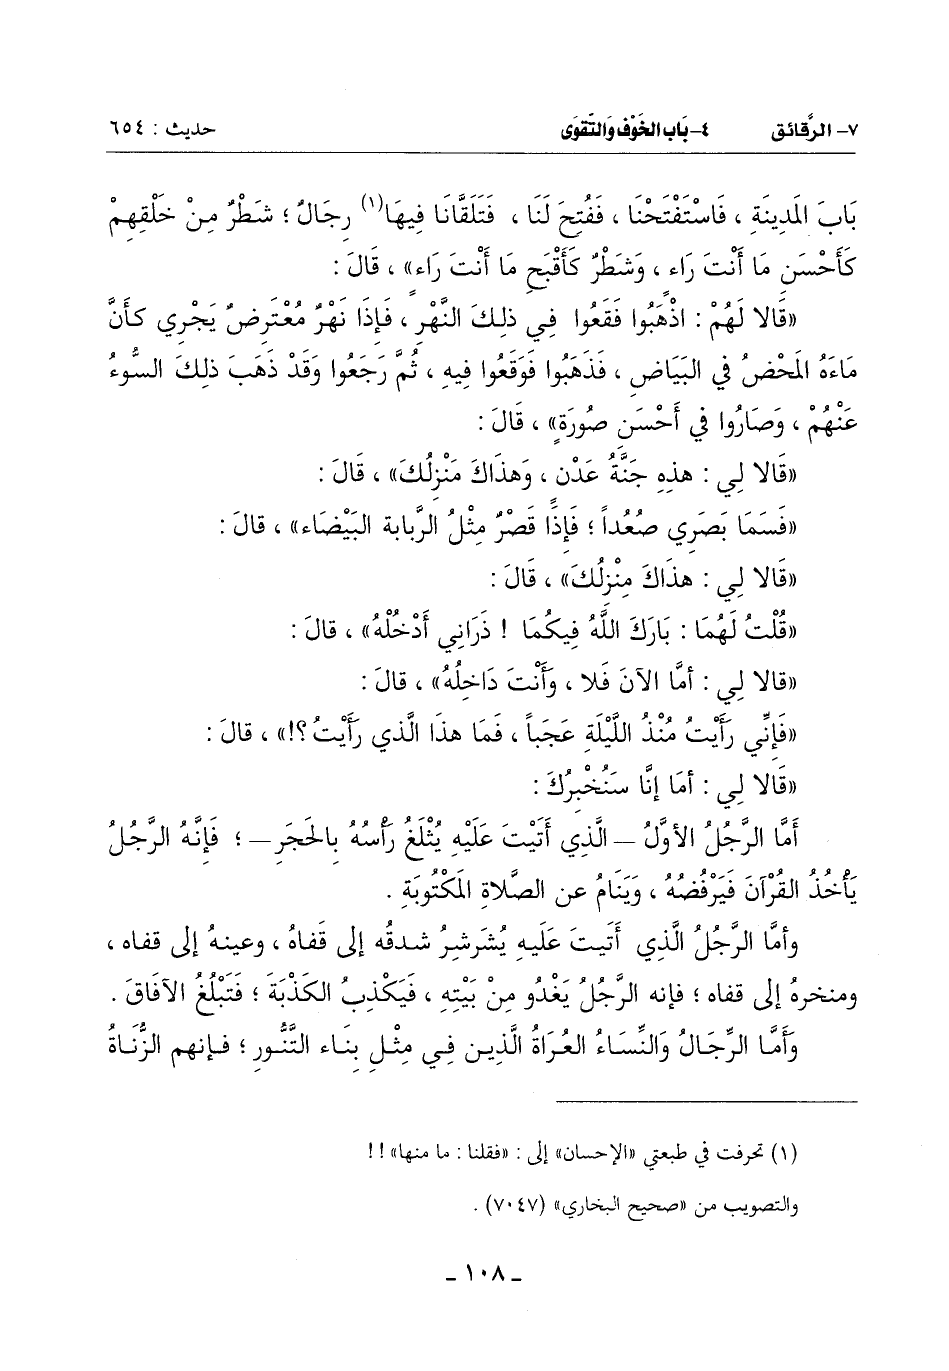 ٧- الرَّقائق ٤- بَاب الخَوْف وَالتَّقوَى حديث : ٦٥٤
بَابَ المَدِينَةِ ، فَاسْتَفْتَحْنَا ، فَفُتِحَ لَنَا ، فَتَلَقَّانَا فِيهَا(١) رِجَالٌ ؛ شَطْرٌ مِنْ خَلْقِهِمْ
كَأَحْسَنِ مَا أَنْتَ رَاءٍ ، وَشَطْرٌ كَأَقْبَحِ مَا أَنْتَ رَاءٍ» ، قَالَ :
«قَالا لَهُمْ : اذْهَبُوا فَقَعُوا فِي ذلِكَ النَّهْرِ ، فَإِذَا نَهْرٌ مُعْتَرِضٌ يَجْرِي كأَنَّ
مَاءَهُ المَحْضُ في البَيَاضِ ، فَذَهَبُوا فَوَقَعُوا فِيهِ ، ثُمَّ رَجَعُوا وَقَدْ ذَهَبَ ذلِكَ السُّوءُ
عَنْهُمْ ، وَصَارُوا فِي أَحْسَنِ صُورَةٍ» ، قَالَ :
«قَالا لِي : هذِهِ جَنَّةُ عَدْنٍ ، وَهذَاكَ مَنْزِلُكَ» ، قَالَ :
«فَسَمَا بَصَرِي صُعُداً ؛ فَإِذَا قَصْرٌ مِثْلُ الرَّبابة البَيْضَاءِ» ، قالَ :
«قَالا لِي : هذَاكَ مِنْزِلُكَ» ، قَالَ :
«قُلْتُ لَهُمَا : بَارَكَ اللَّهُ فِيكُمَا ! ذَرَانِي أَدْخُلْهُ» ، قالَ :
«قالا لِي : أمَّا الآنَ فَلا ، وَأَنْتَ دَاخِلُهُ» ، قالَ :
«فَإِنِّي رَأَيْتُ مُنْذُ اللَّيْلَةِ عَجَباً ، فَمَا هذَا الَّذي رَأَيْتُ ؟!» ، قالَ :
«قَالا لِي : أمَا إِنَّا سَنُخْبِرُكَ :
أَمَّا الرَّجُلُ الأوَّلُ –الَّذِي أَتَيْتَ عَلَيْهِ يُثْلَغُ رَأْسُهُ بِالحَجَرِ– ؛ فَإِنَّهُ الرَّجُلُ
يَأْخُذُ القُرْآنَ فَيَرْفُضُهُ ، وَيَنَامُ عن الصَّلاةِ المَكْتُوبَةِ .
وأمَّا الرَّجُلُ الَّذِي أَتَيتَ عَلَيهِ يُشَرشِرُ شدقُه إلى قَفاهُ ، وعينهُ إلى قفاه ،
ومنخرهُ إلى قفاه ؛ فإنه الرَّجُلُ يَغْدُو مِنْ بَيْتِهِ ، فَيَكْذِبُ الكَذْبَةَ ؛ فَتَبْلُغُ الآفَاقَ .
وَأَمَّا الرِّجَالُ وَالنِّسَاءُ العُرَاةُ الَّذِينَ فِي مِثْلِ بِنَاءِ التَّنُّورِ ؛ فإنهم الزُّنَاةُ
(١) تحرفت في طبعتي «الإحسان» إلى : «فقلنا : ما منها» ! !
والتصويب من «صحيح البخاري» (٧٠٤٧) .
- ١٠٨ -